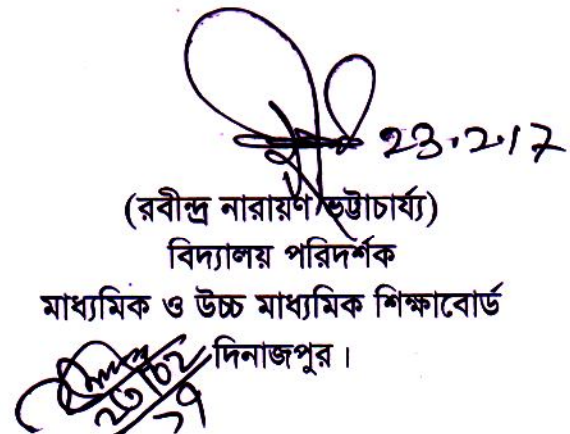 23.2.17
(রবীন্দ্র নারায়ণ ভট্টাচার্য্য)
বিদ্যালয় পরিদর্শক
মাধ্যমিক ও উচ্চ মাধ্যমিক শিক্ষাবোর্ড
দিনাজপুর।
২৩/০২
১৭